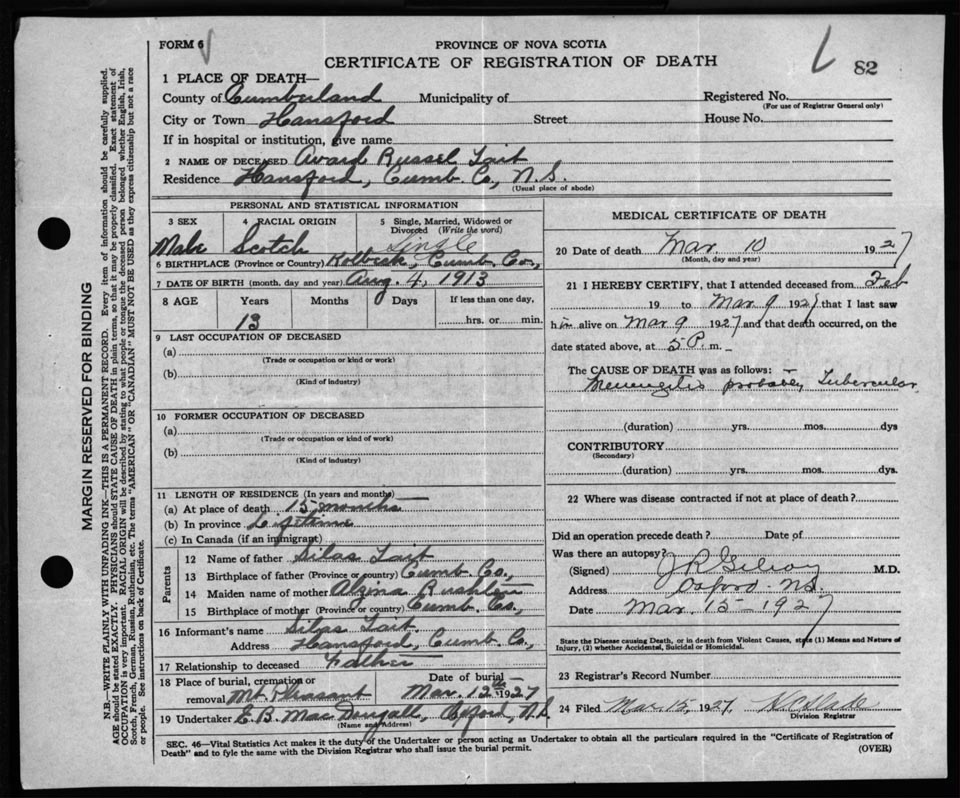 FORM 6
PROVINCE OF NOVA SCOTIA
CERTIFICATE OF REGISTRATION OF DEATH
82
1 PLACE OF DEATH—
County of Cumberland Municipality of Registered No.
(For use of Registrar General only)
City or Town Hansford Street House No.
If in hospital or institution, give name
2 NAME OF DECEASED Award Russel Tait
Residence Hansford, Cumb. Co., N.S.
(Usual place of abode)
PERSONAL AND STATISTICAL INFORMATION
3 SEX 4 RACIAL ORIGIN 5 Single, Married, Widowed or Divorced (Write the word)
Male Scotch Single
6 BIRTHPLACE (Province or Country) Cumb. Co.,
7 DATE OF BIRTH (month, day and year) Aug. 4, 1913
8 AGE Years Months Days If less than one day,
13 hrs. or min.
9 LAST OCCUPATION OF DECEASED
(a)
(Trade or occupation or kind of work)
(b)
(Kind of industry)
10 FORMER OCCUPATION OF DECEASED
(a)
(Trade or occupation or kind of work)
(b)
(Kind of industry)
11 LENGTH OF RESIDENCE (In years and months)
(a) At place of death 15 months
(b) In province Lifetime
(c) In Canada (if an immigrant)
Parents
12 Name of father Silas Tait
13 Birthplace of father (Province or country) Cumb. Co.,
14 Maiden name of mother Rushton
15 Birthplace of mother (Province or Country) Cumb. Co.,
16 Informant's name Silas Tait
Address Hansford, Cumb. Co.,
17 Relationship to deceased Father
18 Place of burial, cremation or removal Mt. Pleasant Date of burial— Mar. 12th 1927
19 Undertaker E. B. MacDougall, Oxford, N.S.
(Name and Address)
MEDICAL CERTIFICATE OF DEATH
20 Date of death Mar. 10 1927
(Month, day and year)
21 I HEREBY CERTIFY, that I attended deceased from Feb
19 to Mar 9 1927, that I last saw
him alive on Mar 9 1927 and that death occurred, on the
date stated above, at 5 P. m.
The CAUSE OF DEATH was as follows:—
Meningitis probably Tubercular
(duration) yrs. mos. dys
CONTRIBUTORY
(Secondary)
(duration) yrs. mos. dys.
22 Where was disease contracted if not at place of death?
Did an operation precede death? Date of
Was there an autopsy?
(Signed) J R Gilroy M.D.
Address Oxford NS.
Date Mar. 15-1927
State the Disease causing Death, or in death from Violent Causes, state (1) Means and Nature of
Injury, (2) whether Accidental, Suicidal or Homicidal.
23 Registrar's Record Number
24 Filed Mar. 15, 1927
Division Registrar
SEC. 46—Vital Statistics Act makes it the duty of the Undertaker or person acting as Undertaker to obtain all the particulars required in the "Certificate of Registration of
Death" and to fyle the same with the Division Registrar who shall issue the burial permit.
(OVER)
MARGIN RESERVED FOR BINDING
N.B.—WRITE PLAINLY WITH UNFADING INK—THIS IS A PERMANENT RECORD. Every item of information should be carefully supplied.
AGE should be stated EXACTLY. PHYSICIANS should STATE CAUSE OF DEATH in plain terms, so that it may be properly classified. Exact statement of
OCCUPATION is very important. RACIAL ORIGIN will be described by stating to what people or tongue the deceased person belonged whether English, Irish,
Scotch, French, German, Russian, Ruthenian, etc. The terms "AMERICAN" OR "CANADIAN" MUST NOT BE USED as they express citizenship but not a race
or people. See instructions on back of Certificate.